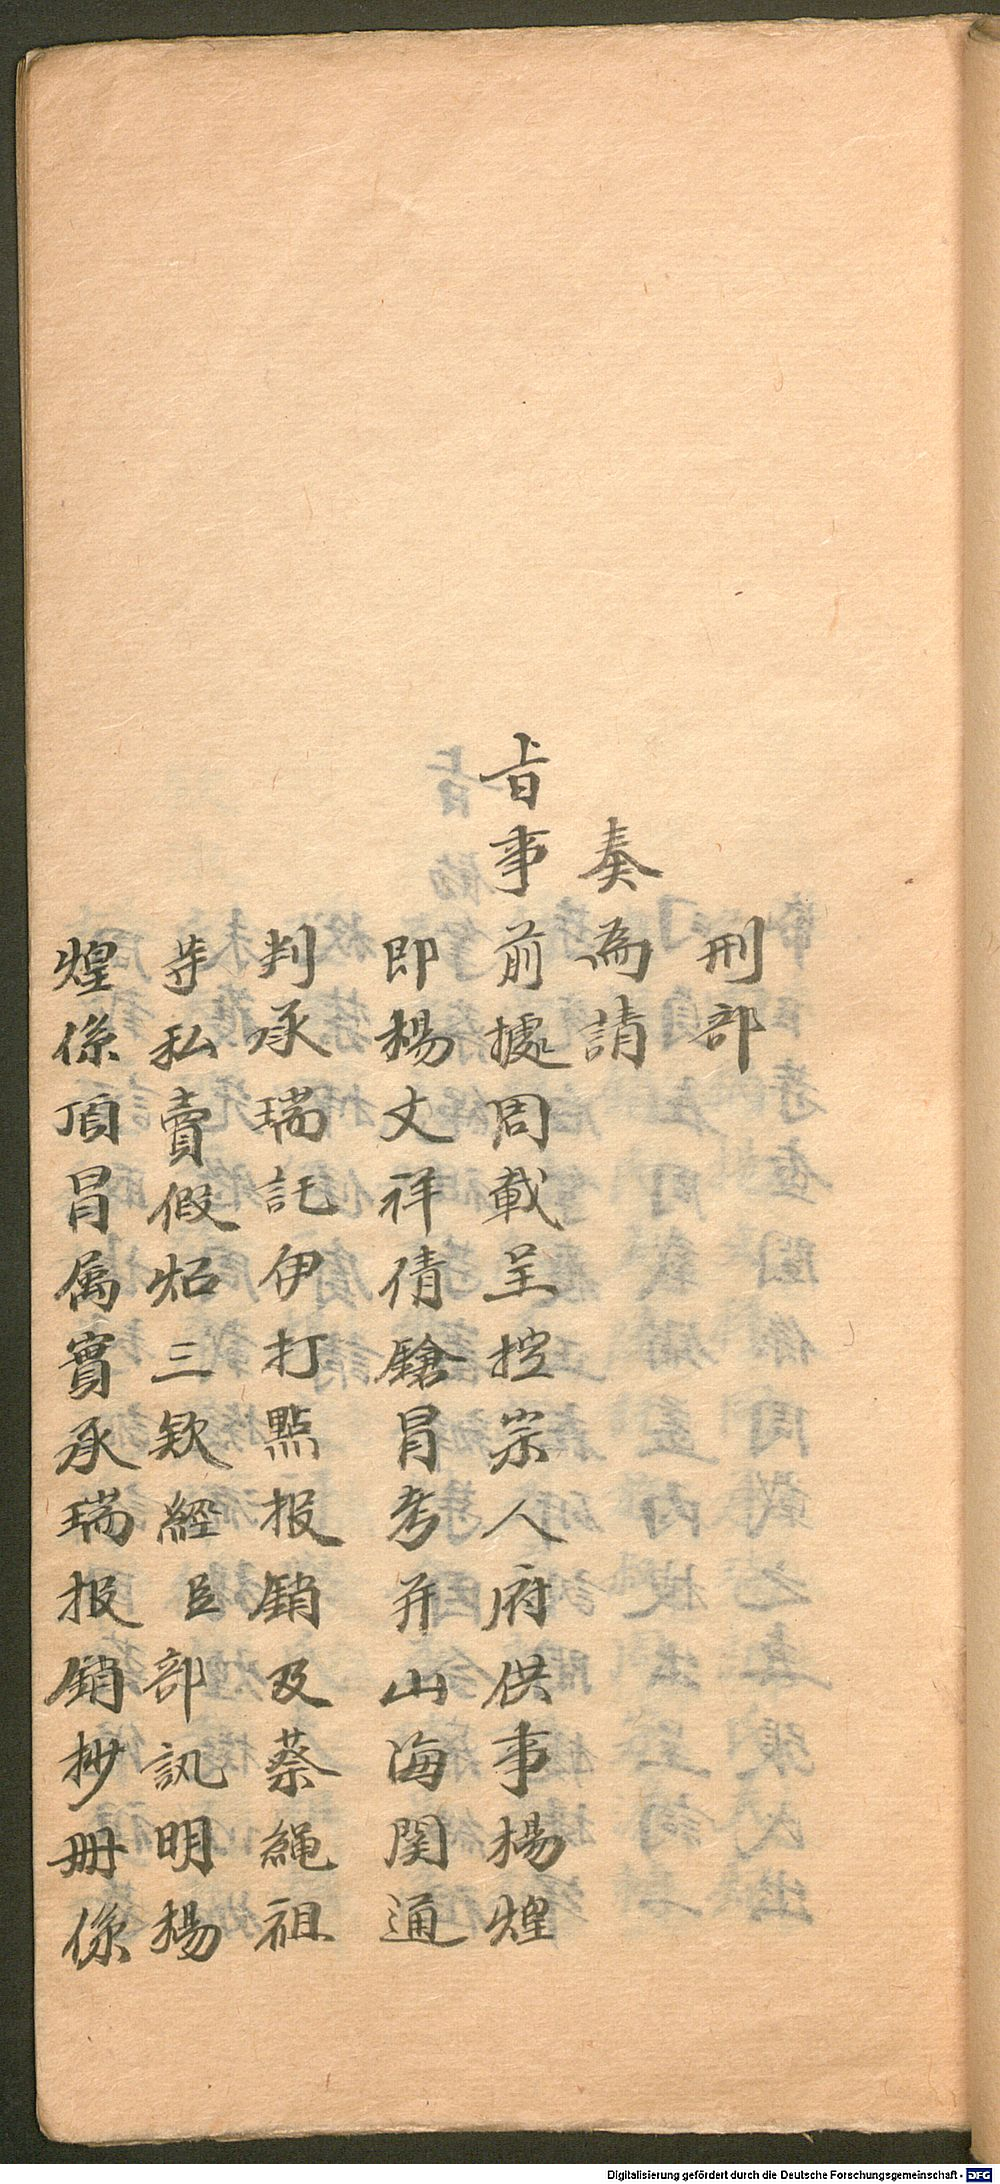 刑部
奏為請
旨事前據周載呈控宗人府供事楊煌
即楊文祥倩鎗冒考并山海関通
判承瑞託伊打點报銷及蔡繩祖
等私賣假炤三欵經臣部訊明楊
煌係頂冒属實承瑞报銷抄册係
Digitalisierung gefördert durch die Deutsche Forschungsgemeinschaft - DFG